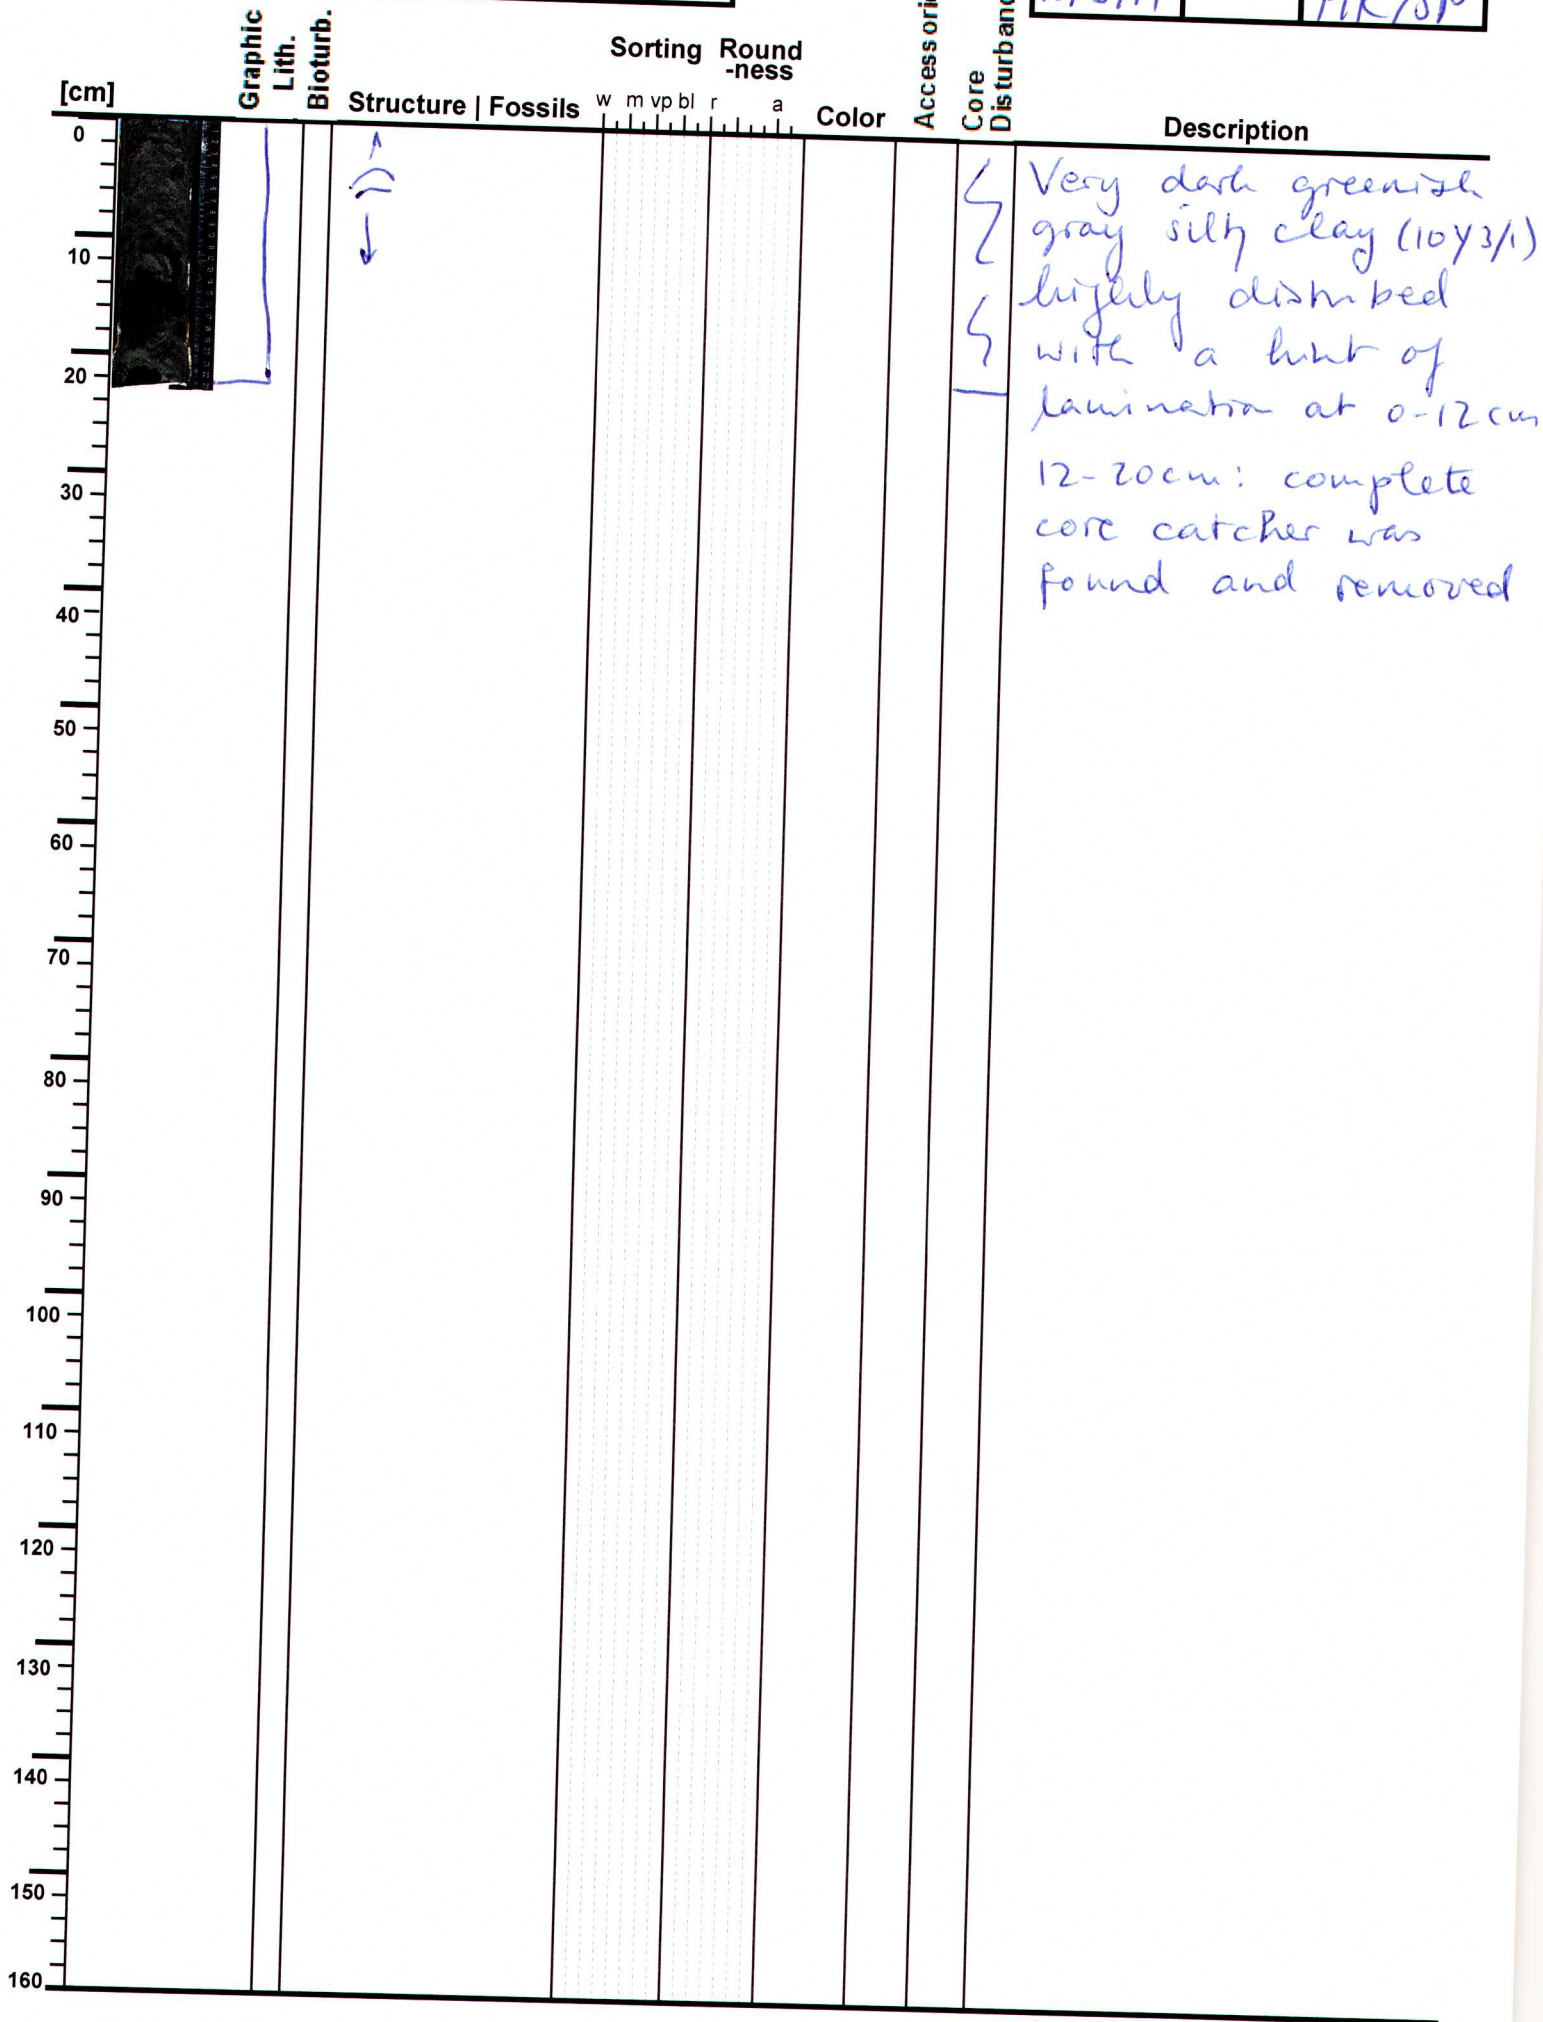 Graphic
Lith.
Bioturb.
Sorting Round
-ness
[cm]
Structure | Fossils
w m vp bl r a
Color
Core
Description
0
10
20
30
40
50
60
70
80
90
100
110
120
130
140
150
160
Very dark greenish
gray silty clay (10Y3/1)
highly disturbed
with a hint of
lamination at 0-12 cm
12-20cm: complete
core catcher was
found and removed